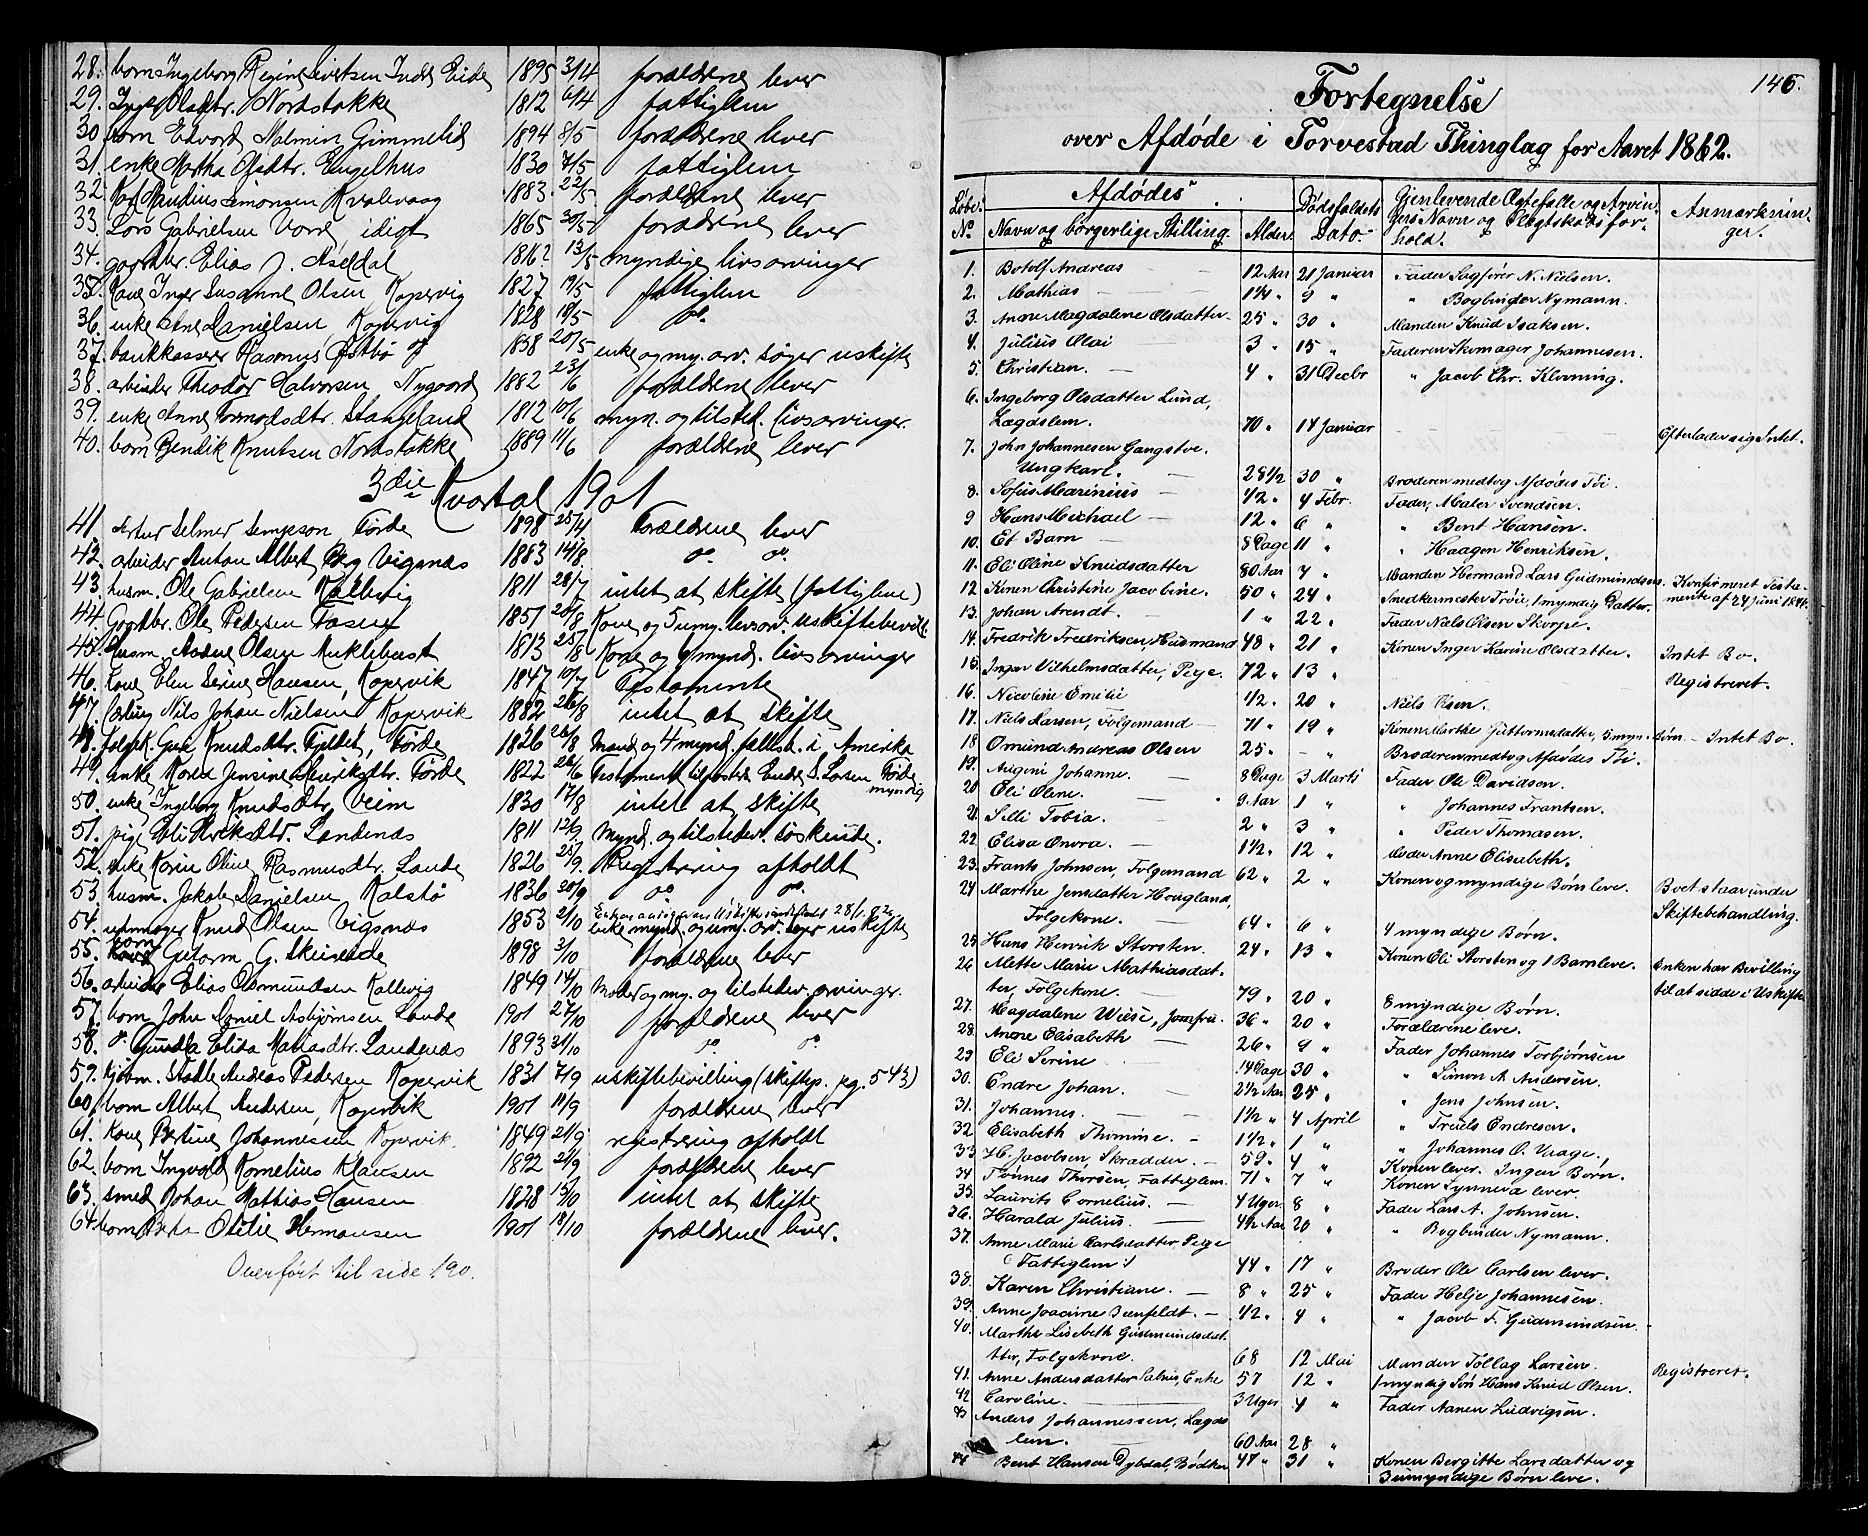 28. barn Ingeborg Regine Sivertsen Indre Eide 1895 3/4 forældrene lever
29. Inger Olsdtr. Nordstokke 1812 6/4 fattiglem
30 barn Edvard Nalmin Gimmelid 1894 8/5 forældrene lever
31. enke Martha Olsdtr. Engelhus 1830 7/5 fattiglem
32. Mauritius Simonsen Kvalevaag 1883 22/5 forældrene lever
33. Lars Gabrielsen Vorre idiot 1865 30/5 forældrene lever
34. gaardbr. Elias J. Aseldal 13/5 myndige livsarvinger
35. Kone Inger Susanne Olsen Kopervig 1827 19/5 fattiglem
36. enke Ane Danielsen Kopervig 1828 18/5 do.
37. bankkasserer Rasmus Østbø og 1838 20/5 enke og my. arv. søger uskifte
38. arbeider Theodor Halvorsen Nygaard 1882 23/6 forældrene lever
39. enke Anne Tormodsdtr. Stangeland 1812 10/6 myn. og tilsted. livsarvinger.
40. barn Bendik Knutsen Nordstokke 1889 11/6 forældrene lever
3die Kvartal 1901
41. Artur Selmer Sempson Førde 1898 25/4 Forældrene lever
42. arbeider Anton Albert Berg Vigsnæs 1883 14/8. do do.
43. husm. Ole Gabrielsen Kallevig 1811 28/7 intet at skifte (fattiglem)
44. Gardbr. Ole Pedersen Fosen 1851 20/8 Kone og 5 umy. livsarv. uskiftebevill.
45. Husm. Aadne Olsen Mykkebust 1813 25/8 Kone og 6 mynd. livsarvinger
46. Kone Elen Serine Hansen, Kopervik 1847 10/7 Testamente
47. Nils Johan Nielsen Kopervik 1882 26/8 intet at skifte
48. folgek. Guri Knudsdtr. Fjeldet, Førde 1826 26/8 Mand og 4 mynd. fallst. i Amerika
49. enke Karen Jensine Henriksdtr. Førde 1822 26/6 Testament tilgodese Endre S. Larsen Førde myndig
50. enke Ingeborg Knudsdtr. Veim 1830 17/8 intet at skifte
51. pige Eli Eriksdtr. Landenæs 1811 12/9 Mynd. og tilstedev. søskende.
52. enke Karin Oline Rasmusdtr. Lande 1826 25/9. Registrering afholdt
53. husm. Jakob Danielsen Kalstø 1836 30/9 do do.
54. Knud Olsen Vigsnæs 1853 2/10 enke mynd. og umy. arv. søger uskifte
55. barn Gutorm G. Skeiseide 1898 3/10 forældrene lever
56. arbeider Elias Osmundsen Kallevig 1849 14/10 Moder og my. og tilstedev. arvinger.
57. barn John Daniel Asbjørnsen Lande 1901 27/10 forældrene lever
58. do Gunda Elida Matiasdtr. Landenæs 1893 31/10 do do.
59. kjøbm. Ståle Andreas Pedersen Kopervik 1831 7/9 uskiftebevilling (skiftep. pg. 543)
60. barn Albert Andersen, Kopervik 1901 11/9 forældrene lever
61. Kone Bertine Johannesen Kopervik. 1849 21/9 registrering afholdt
62. barn Ingvald Kornelius Klausen 1892 21/9 forældrene lever
63. smed Johan Mathias Hansen 1828 15/10 intet at skifte
64. barn Otilie Hermansen 1901 18/10 forældrene lever.
Overført til side 190.
146.
Fortegnelse
over Afdøde i Torvestad Thinglag for Aaret 1862.
Løbe No. Afdødes Navn og borgerlige Stilling. Alder. Dødsfaldets Dato. Gjenlevende Ægtefælle og Arvingers Navn og Slægtskabsforhold. Anmærkninger.
1. Botolf Andreas 12 Aar 21 Januar Fader Sagfører N. Nielsen.
2. Mathias 1 1/4 " 9 " " Bogbinder Nymann.
3. Anne Magdalene Olsdatter 25 " 30 " Manden Knud Isaksen.
4. Julius Olai 3 " 15 " Faderen Skomager Johannesen.
5. Christian. 4 " 31 Decbr " Jacob Chr. Klovning.
6. Ingeborg Olsdatter Lund,
Lægdslem. 70 " 14 Januar Efterlader sig Intet.
7. John Johannesen Gangstøe.
Ungkarl. 28 1/2 30 " Broderen medtog Afdødes Tøi.
8. Sofus Marinius 1/2 " 4 Febr. Fader, Maler Svendsen.
9 Hans Michael 12 " 6 " " Bent Hansen.
10. Et Barn 8 Dage 11 " " Haagen Henriksen.
11. Eli Oline Knudsdatter 80 Aar 4 " Manden Hermand Lars Gudmundsen.
12 Konen Christine Jacobine. 50 " 24 " Smedkermester Trøie, 1 myndig Datter. Konfirmeret Testamente af 24 Juni 1846.
13. Johan Arendt. 1 " 22 " Fader Niels Olsen Skorpe.
14. Fredrik Fredriksen, Husmand 48 " 21 " Konen Inger Karine Olsdatter. Intet Bo.
15. Inger Vilhelmsdatter, Pige. 72 " 13 " Registreret.
16. Nicoline Emilie 1/2 " 20 " Niels Olsen.
17. Niels Larsen, Folgemand 71 " 19 " Konen Marthe Guttormsdatter, 5 myn. Børn – Intet Bo.
18 Omund Andreas Olsen 25 " – " Broderen medtog Afdødes Tøi.
19. Augeni Johanne. 8 Dage 3 Marts Fader Ole Davidsen.
20 Eli Olene. 9 Aar 1 " " Johannes Frantsen.
21. Silli Tobia. 2 " 3 " " Peder Thomasen.
22 Elisa Onora. 1 1/2 " 12 " Moder Anne Elisabeth.
23. Frants Johnsen, Folgemand 62 " 2 " Konen og myndige Børn leve. Boet staar under Skiftebehandling.
24 Marthe Jensdatter Hougland,
Folgekone. 64 " 6 " 4 myndige Børn.
25 Hans Henrik Storsten. 24 " 13 " Konen Eli Storsten og 1 Barn leve. Enken har Bevilling til at sidde i Uskifte
26 Mette Marie Mathiasdatter,
Folgekone. 79 " 20 " 8 myndige Børn.
27. Magdalene Wiese, Jomfru. 36 " 20 " Forældrene leve.
28. Anne Elisabeth 26 " 9 " Fader Johannes Torbjørnsen
29 Eli Serine 14 Dage 30 " " Simon A. Andersen.
30. Endre Johan. 2 1/2 Aar 25 " " Jens Johnsen.
31. Johannes. 1 1/2 " 4 April " Truels Endresen.
32 Elisabeth Thomine. 1 1/2 " 1 " " Johannes O. Vaage.
33 H. Jacobsen, Skrædder. 59 " 4 " Konen lever. Ingen Børn.
34 Tønnes Thorsen, Fattiglem. 71 " 7 " Konen Synneva lever.
35. Laurits Cornelius. 4 Uger 8 " Fader Lars A. Johnsen.
36. Harald Julius. 4 1/2 Aar 20 " " Bogbinder Nymann.
37. Anne Marie Carlsdatter Pige
(Fattiglem) 44 " 17 " Broder Ole Carlsen lever.
38. Karen Christiane. 8 " 25 " Fader Helje Johannesen.
39. Anne Joacime Isenfeldt. 1/2 " 4 " " Jacob F. Gudmundsen.
40. Marthe Lisebeth Gudmundsdatter,
Folgekone. 68 12 Mai Manden Tollag Larsen.
41. Anne Andersdatter Salnes, Enke 57 12 " 1 myndig Søn Hans Knud Olsen. Registreret.
42 Caroline. 3 Uger 4 " Fader Aanen Ludvigsen.
43 Anders Johannessen, Lægds
lem. 60 Aar 28 "
44 Bent Hansen Dybdal, Bødker 47 " 31 " Konen Bergitte Larsdatter og
3 umyndige Børn leve.